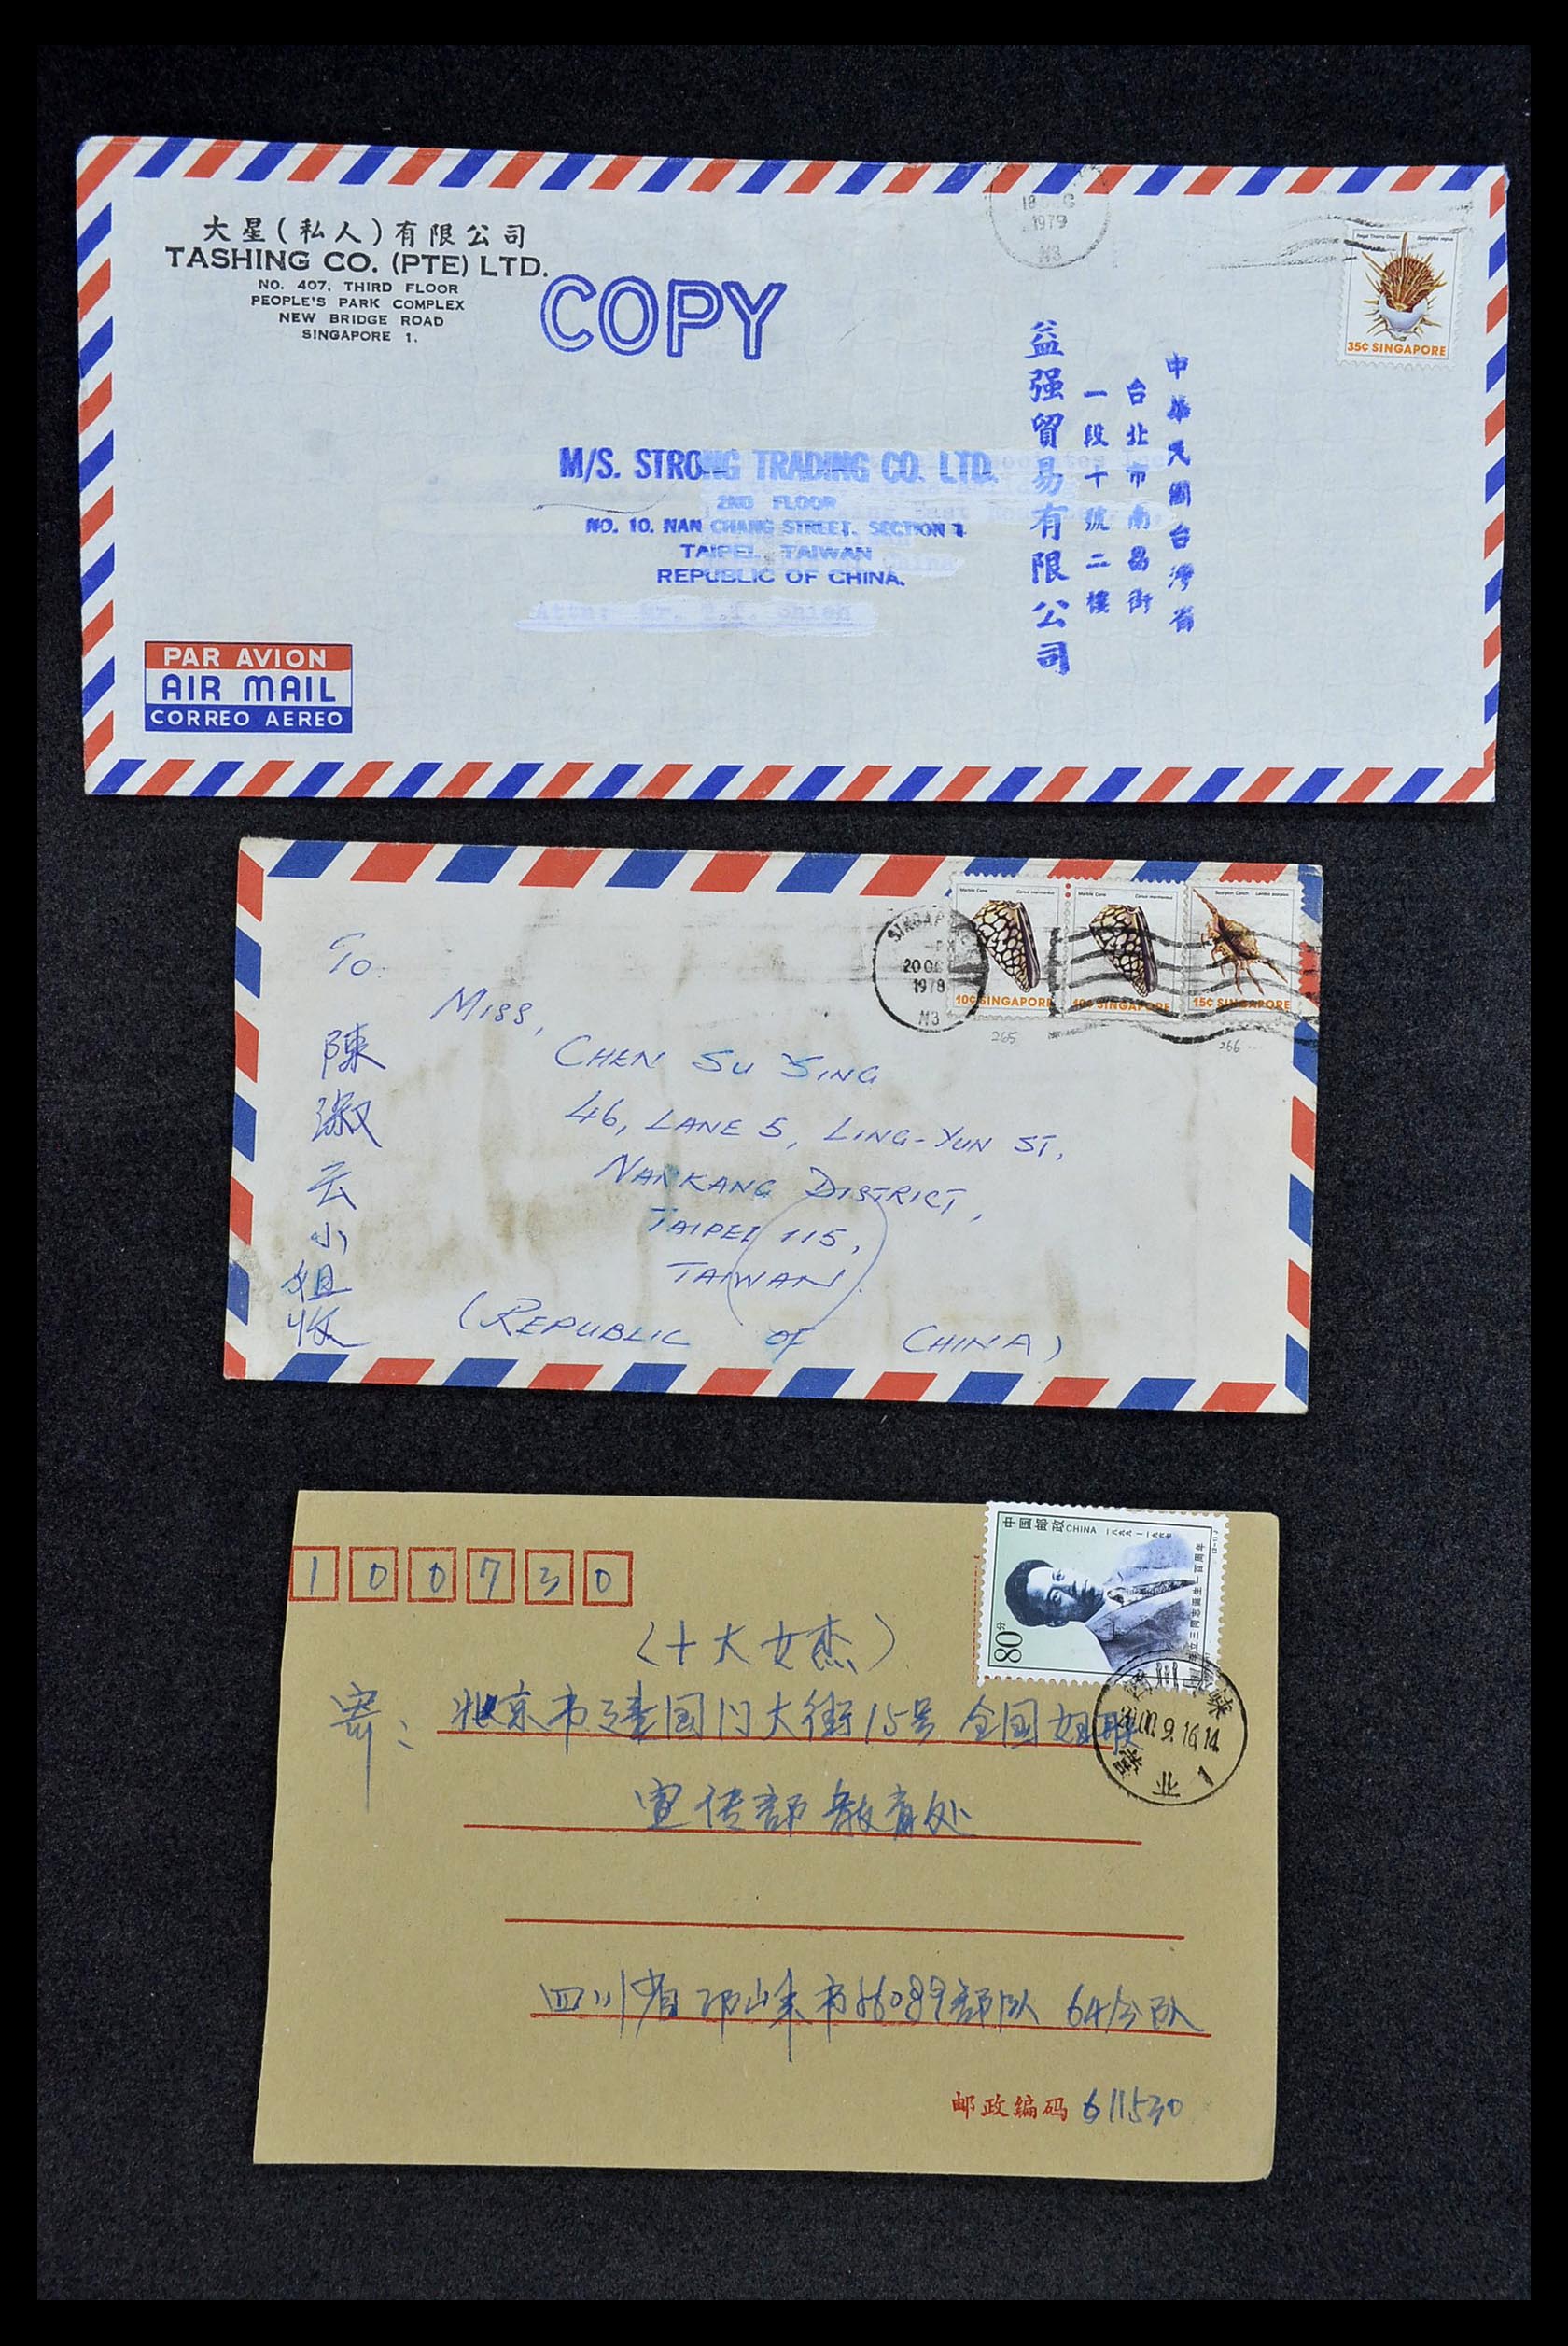 大星(私人)有限公司
TASHING CO. (PTE) LTD.
NO. 407, THIRD FLOOR
PEOPLE'S PARK COMPLEX
NEW BRIDGE ROAD
SINGAPORE 1.
COPY
1979
M3
35¢ SINGAPORE
M/S. STRONG TRADING CO. LTD.
2ND FLOOR
NO. 10. NAN CHANG STREET. SECTION 1
TAIPEI, TAIWAN
REPUBLIC OF CHINA.
中華民國台灣省
台北市南昌街
一段十號二樓
益强貿易有限公司
PAR AVION
AIR MAIL
CORREO AEREO
Marble Cone Conus marmoreus
Marble Cone Conus marmoreus
Scorpion Conch Lambis scorpius
10¢ SINGAPORE
10¢ SINGAPORE
15¢ SINGAPORE
1978
M3
265
266
To
MISS,
CHEN SU YING
46, LANE 5, LING-YUN ST,
NANKANG DISTRICT,
TAIPEI 115,
TAIWAN.
(REPUBLIC OF CHINA)
陳淑云小姐收
100730
中国邮政 CHINA 一八九九—一九六七
80分
李立三同志诞生一百周年
(十大女杰)
寄: 北京市建国门大街15号 全国妇联
宣传部教育处
四川省邛崃市86089部队 64分队
邮政编码 611530